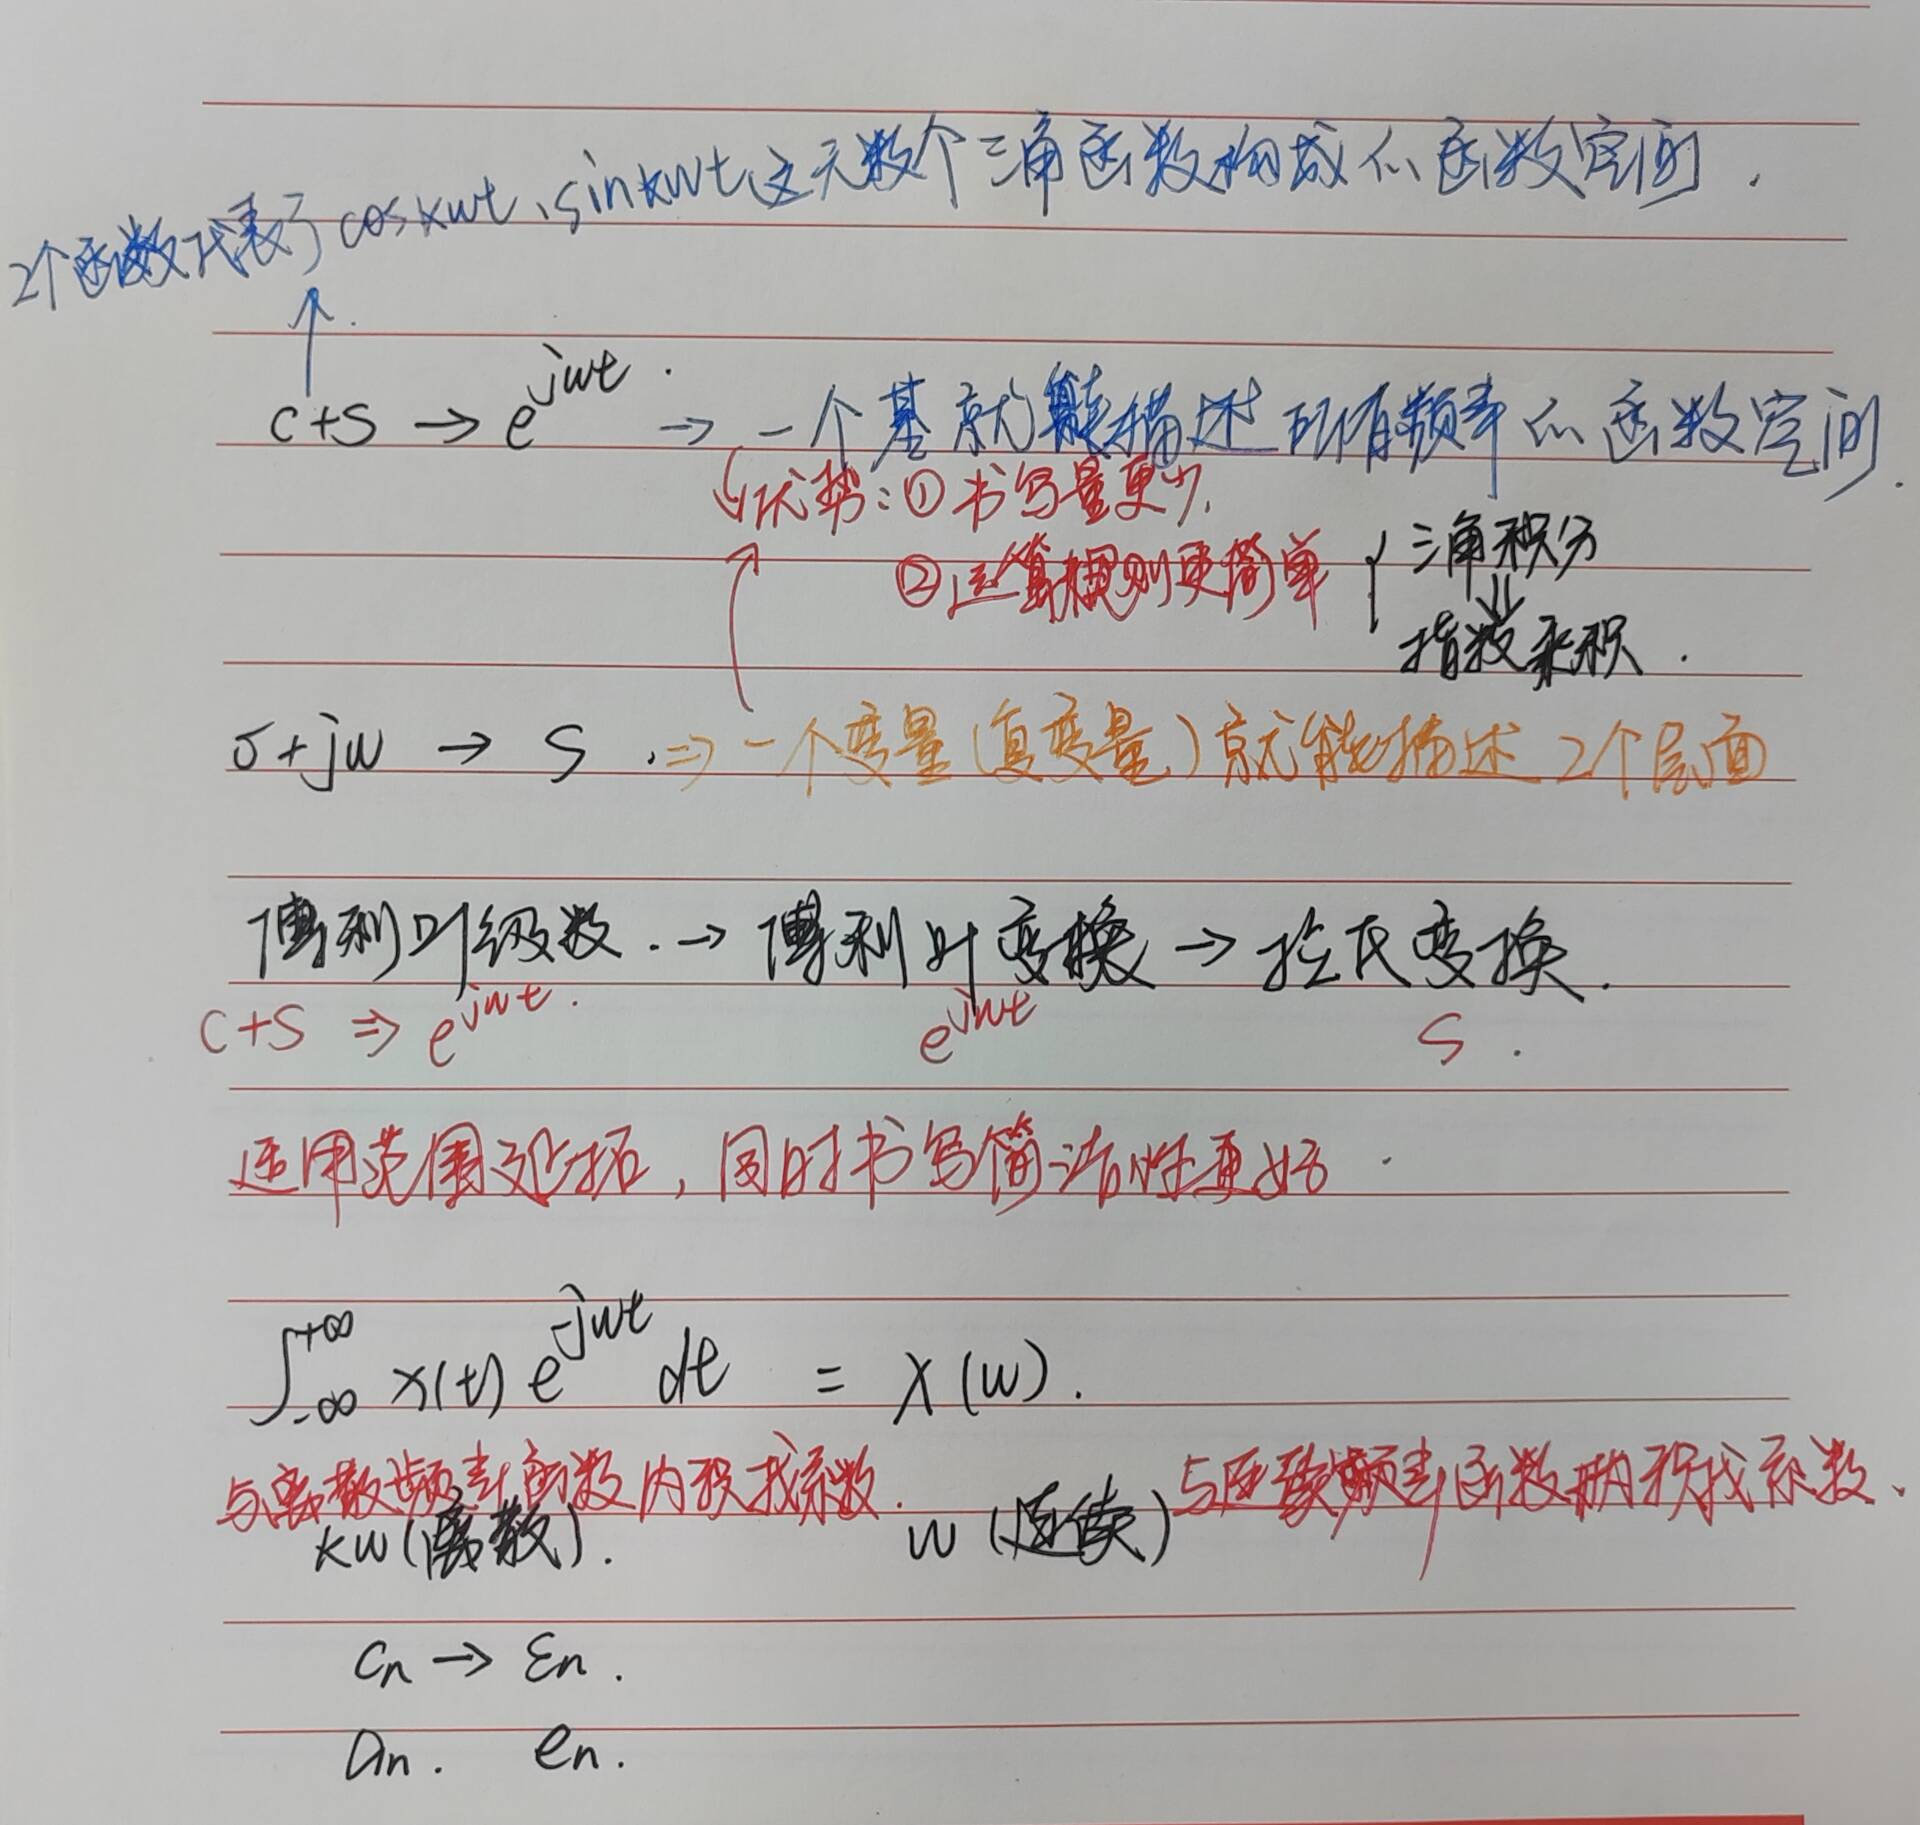 2个函数代表了coskwt、sinkwt这无数个三角函数构成的函数空间.
↑
c+s → e^{jwt}. → 一个基就能描述所有频率的函数空间.
↳优势:①书写量更少.
②运算规则更简单 { 三角积分
⇓
指数乘积.
σ+jw → S. ⇒ 一个变量(复变量)就能描述2个层面
傅利叶级数. → 傅利叶变换 → 拉氏变换.
c+s ⇒ e^{jwt}. e^{jwt} S.
适用范围延拓, 同时书写简洁性更好.
∫_{-∞}^{+∞} x(t) e^{-jwt} dt = X(w).
与离散频率函数内积找系数. 与连续频率函数内积找系数、
kw(离散). w(连续)
Cn → εn.
Dn. en.